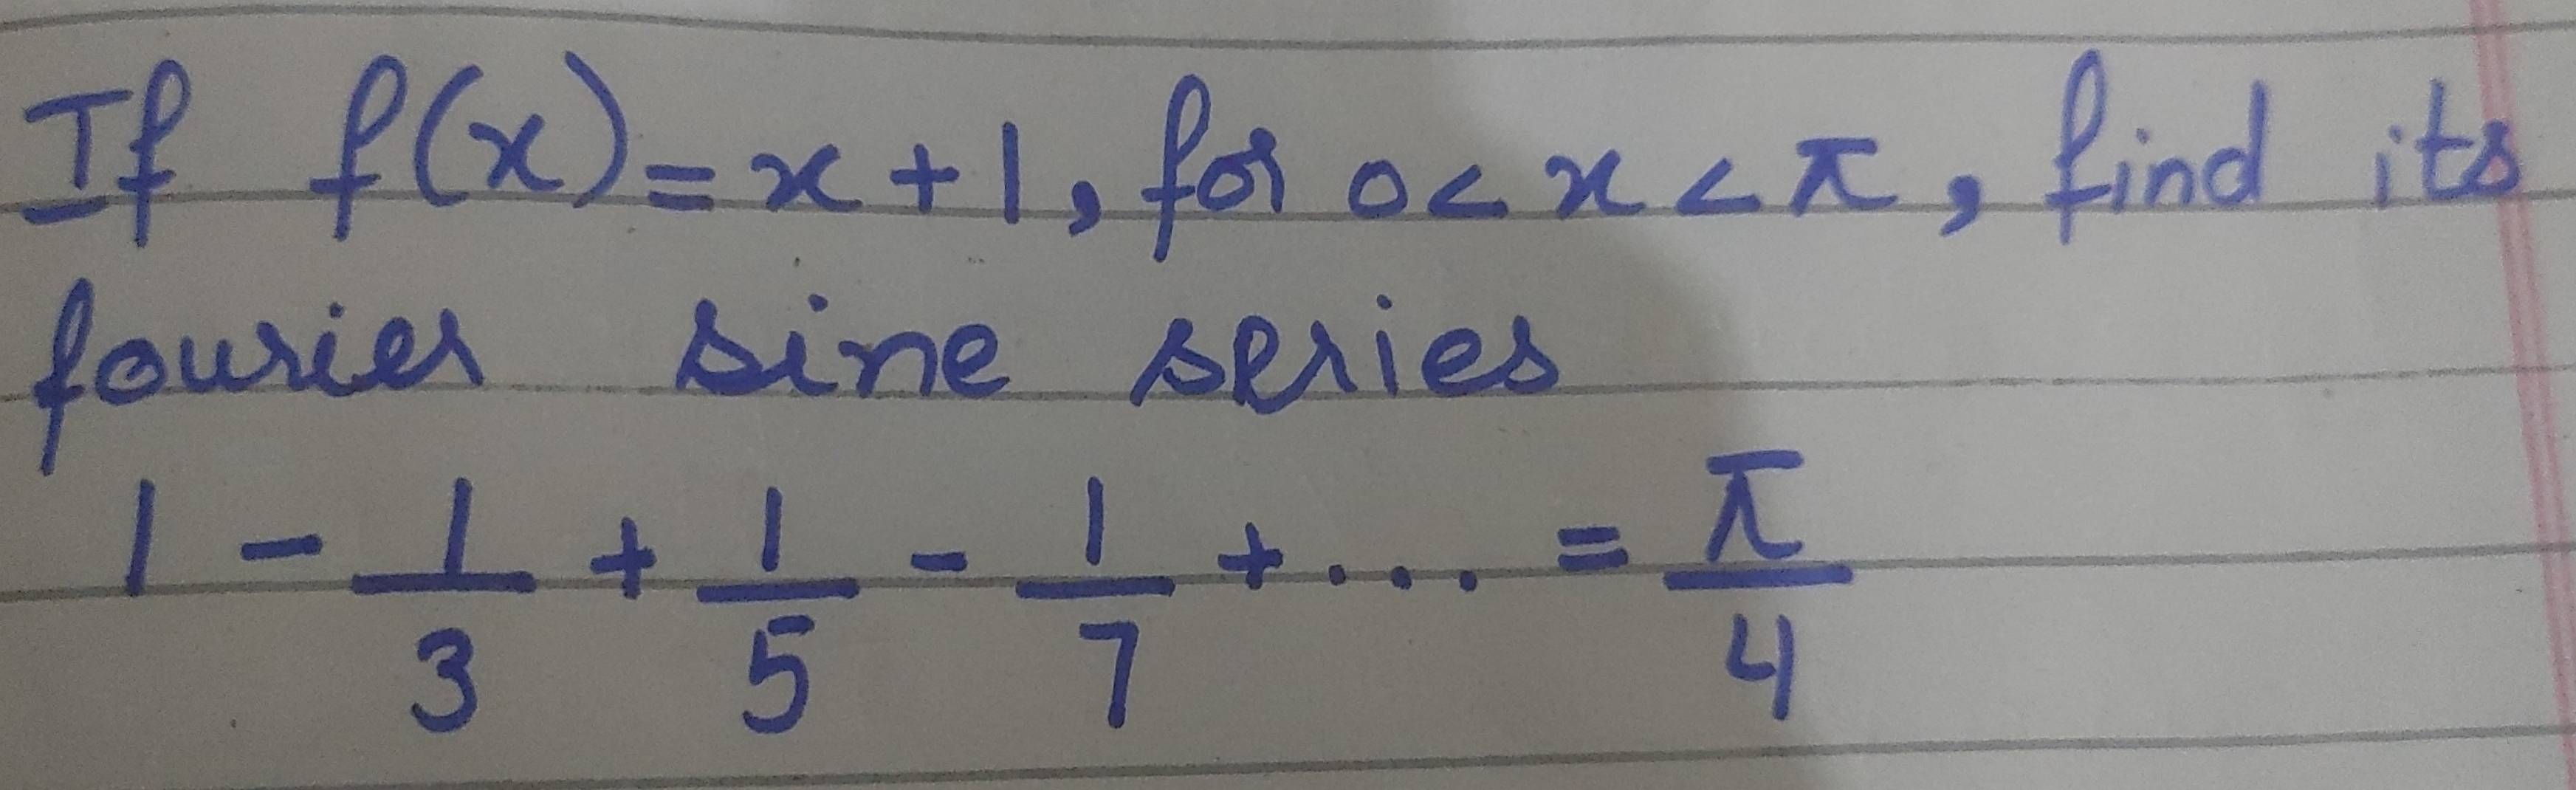 If f(x) = x + 1, for 0 < x < π, find its
fourier sine series
1 - 1/3 + 1/5 - 1/7 + ... = π/4